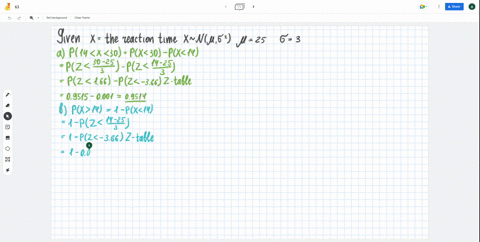 Given X = the reaction time X~N(μ,σ²) μ=25 σ=3
a) P(14<X<30) = P(X<30) - P(X<14)
= P(Z < 30-25/3) - P(Z < 14-25/3)
= P(Z < 1.66) - P(Z < -3.66) Z-table
= 0.9515 - 0.001 = 0.9514
b) P(X>14) = 1 - P(X<14)
= 1 - P(Z < 14-25/3)
= 1 - P(Z < -3.66) Z-table
= 1 - 0.0